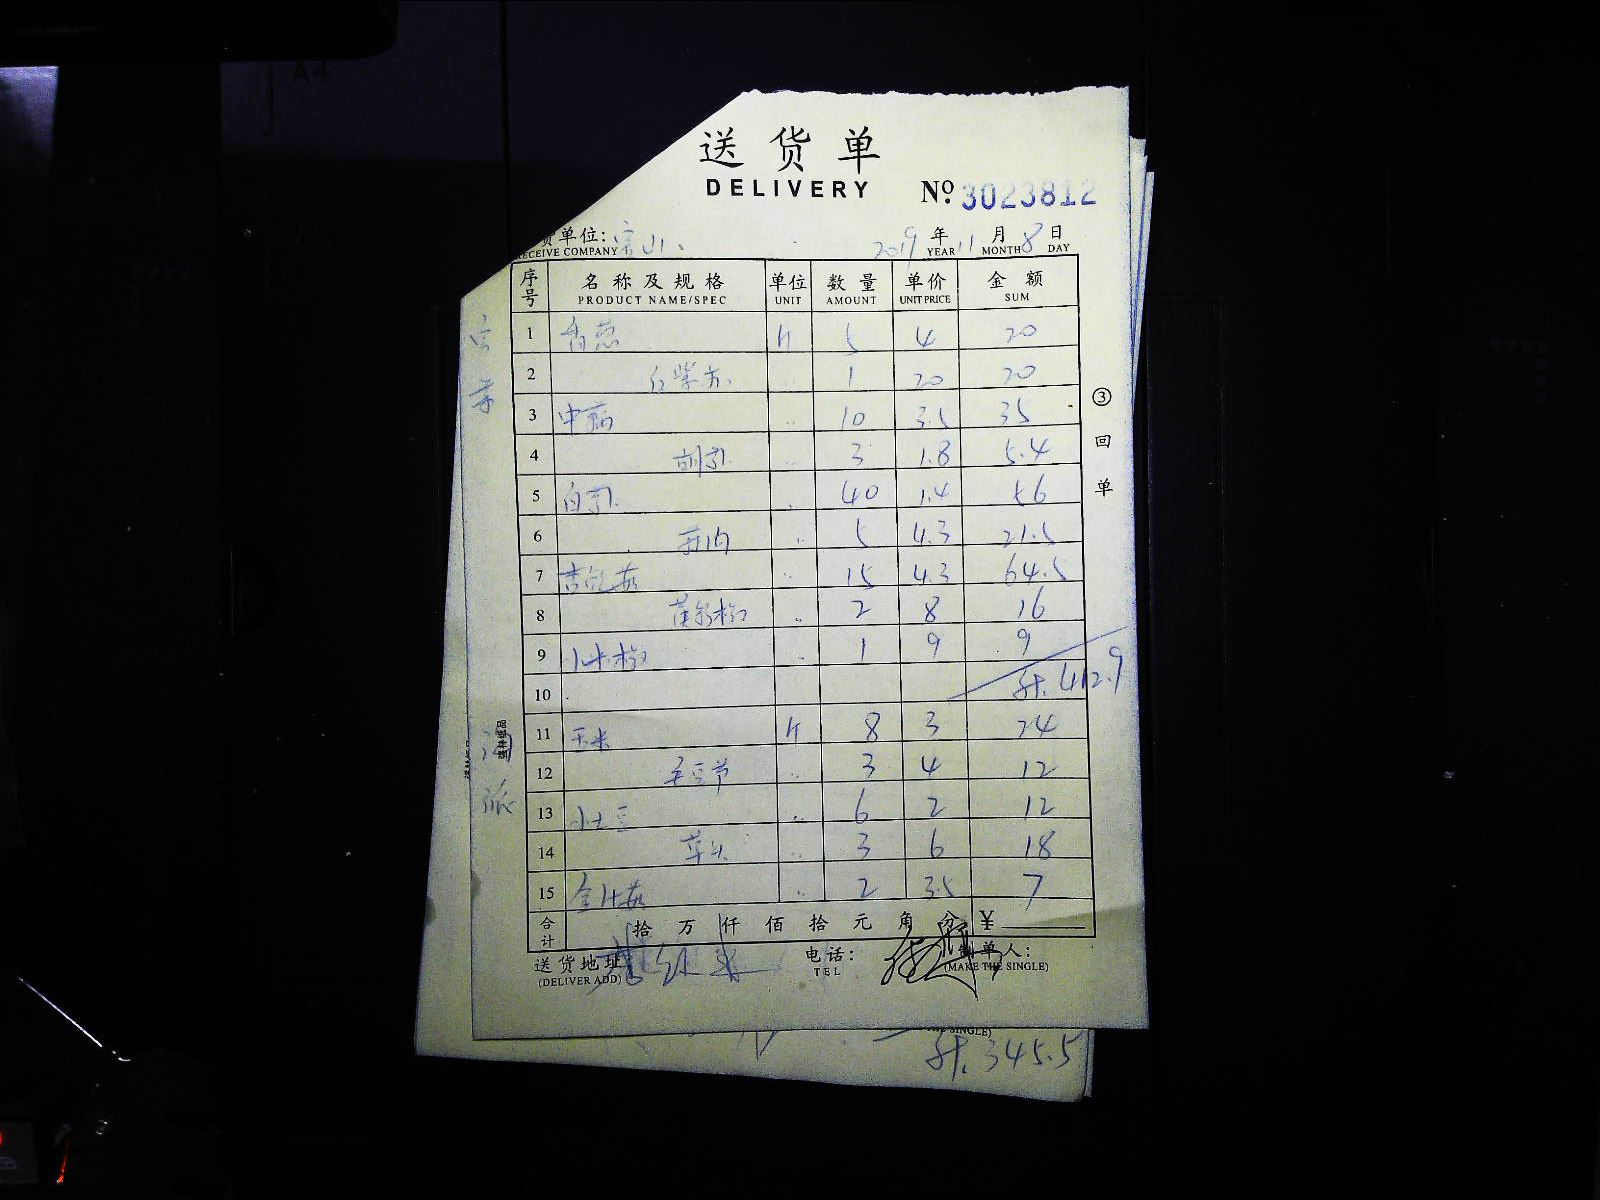 A4
送货单
DELIVERY
№ 3023812
货单位:
RECEIVE COMPANY
2019年11月8日
YEAR MONTH DAY
序号 名称及规格 单位 数量 单价 金额
PRODUCT NAME/SPEC UNIT AMOUNT UNIT PRICE SUM
1 香葱 斤 5 4 20
2 紫苏 1 20 20
3 中 10 3.5 35
4 3 1.8 5.4
5 白 40 1.4 56
6 5 4.3 21.5
7 杏鲍菇 15 4.3 64.5
8 黄彩椒 2 8 16
9 小米椒 1 9 9
10 计. 412.9
11 玉米 斤 8 3 24
12 毛豆节 3 4 12
13 小土豆 6 2 12
14 草头 3 6 18
15 金针菇 2 3.5 7
合计 拾 万 仟 佰 拾 元 角 分 ¥
送货地址:
(DELIVER ADD)
电话:
TEL
制单人:
(MAKE THE SINGLE)
③ 回单
计. 345.5